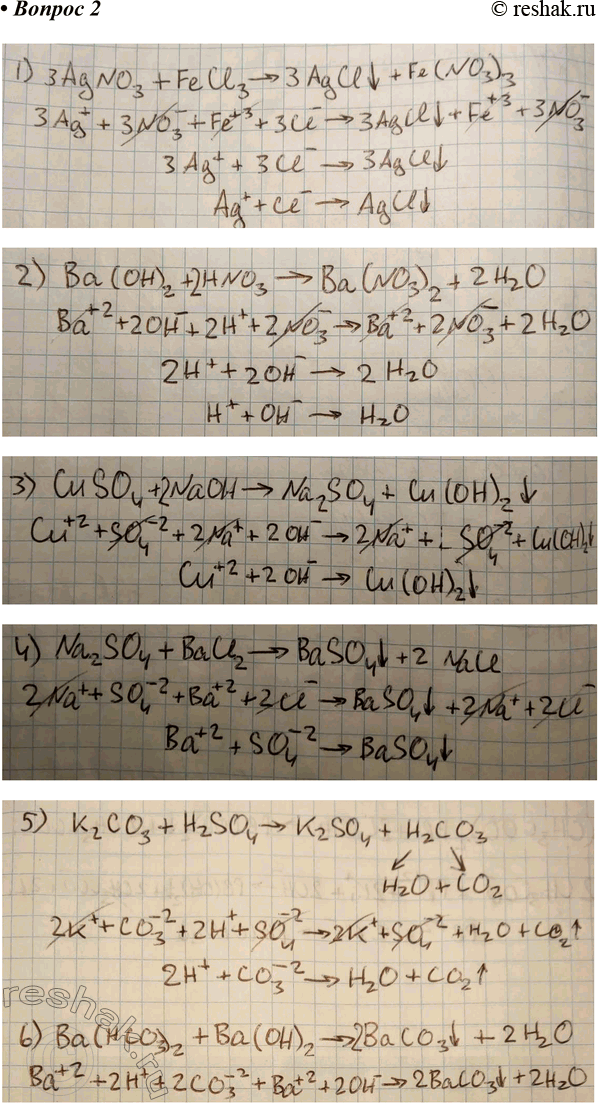 • Вопрос 2
© reshak.ru
1) 3AgNO₃ + FeCl₃ → 3AgCl↓ + Fe(NO₃)₃
3Ag⁺ + 3NO₃⁻ + Fe⁺³ + 3Cl⁻ → 3AgCl↓ + Fe⁺³ + 3NO₃⁻
3Ag⁺ + 3Cl⁻ → 3AgCl↓
Ag⁺ + Cl⁻ → AgCl↓
2) Ba(OH)₂ + 2HNO₃ → Ba(NO₃)₂ + 2H₂O
Ba⁺² + 2OH⁻ + 2H⁺ + 2NO₃⁻ → Ba⁺² + 2NO₃⁻ + 2H₂O
2H⁺ + 2OH⁻ → 2H₂O
H⁺ + OH⁻ → H₂O
3) CuSO₄ + 2NaOH → Na₂SO₄ + Cu(OH)₂↓
Cu⁺² + SO₄⁻² + 2Na⁺ + 2OH⁻ → 2Na⁺ + SO₄⁻² + Cu(OH)₂↓
Cu⁺² + 2OH⁻ → Cu(OH)₂↓
4) Na₂SO₄ + BaCl₂ → BaSO₄↓ + 2NaCl
2Na⁺ + SO₄⁻² + Ba⁺² + 2Cl⁻ → BaSO₄↓ + 2Na⁺ + 2Cl⁻
Ba⁺² + SO₄⁻² → BaSO₄↓
5) K₂CO₃ + H₂SO₄ → K₂SO₄ + H₂CO₃
H₂O + CO₂
2K⁺ + CO₃⁻² + 2H⁺ + SO₄⁻² → 2K⁺ + SO₄⁻² + H₂O + CO₂↑
2H⁺ + CO₃⁻² → H₂O + CO₂↑
reshak.ru
6) Ba(HCO₃)₂ + Ba(OH)₂ → 2BaCO₃↓ + 2H₂O
Ba⁺² + 2H⁺ + 2CO₃⁻² + Ba⁺² + 2OH⁻ → 2BaCO₃↓ + 2H₂O